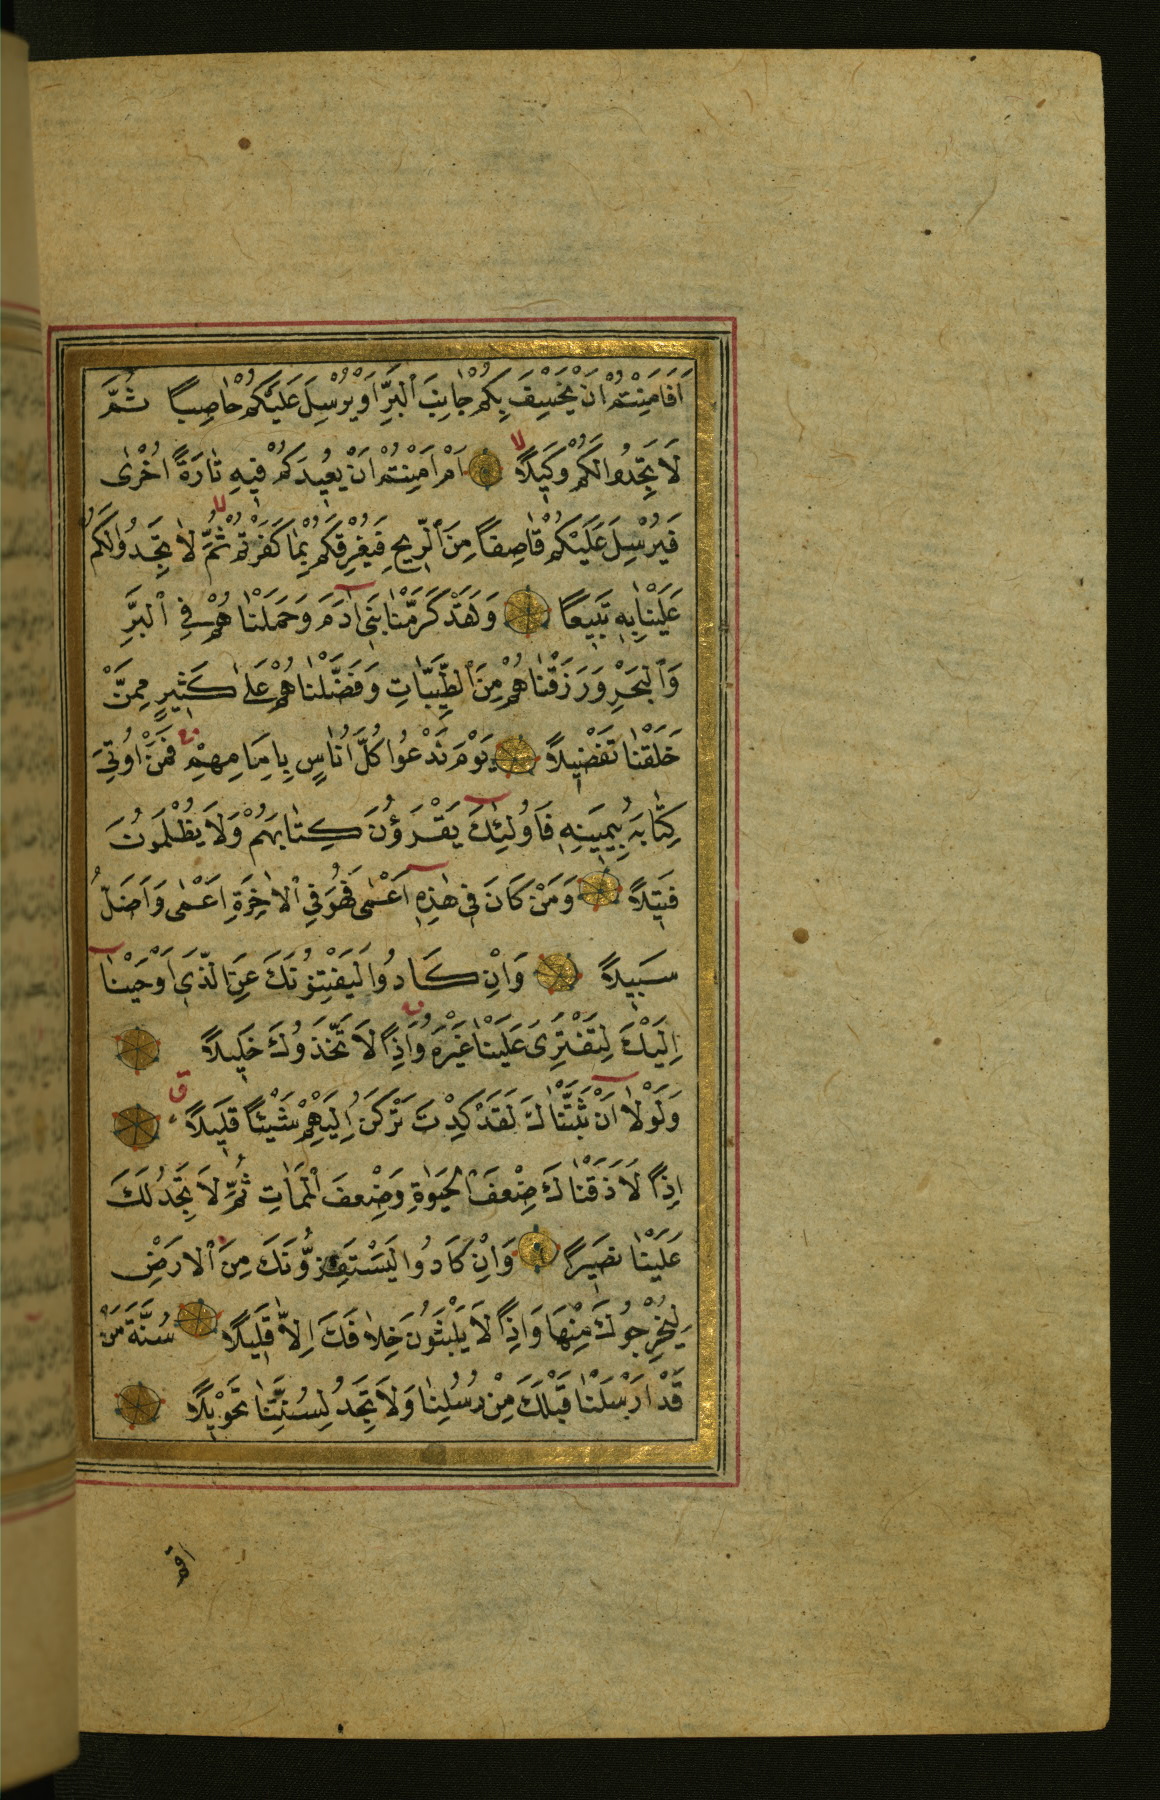 اَفَاَمِنْتُمْ اَنْ يَخْسِفَ بِكُمْ جَانِبَ ٱلْبَرِّ اَوْ يُرْسِلَ عَلَيْكُمْ حَاصِبًا ثُمَّ
لَا تَجِدُوا لَكُمْ وَكِيلًا لا اَمْ اَمِنْتُمْ اَنْ يُعِيدَكُمْ فِيهِ تَارَةً اُخْرٰى
فَيُرْسِلَ عَلَيْكُمْ قَاصِفًا مِنَ ٱلرِّيحِ فَيُغْرِقَكُمْ بِمَا كَفَرْتُمْ لا ثُمَّ لَا تَجِدُوا لَكُمْ
عَلَيْنَا بِهِ تَبِيعًا وَلَقَدْ كَرَّمْنَا بَنِي اٰدَمَ وَحَمَلْنَاهُمْ فِي ٱلْبَرِّ
وَٱلْبَحْرِ وَرَزَقْنَاهُمْ مِنَ ٱلطَّيِّبَاتِ وَفَضَّلْنَاهُمْ عَلٰى كَثِيرٍ مِمَّنْ
خَلَقْنَا تَفْضِيلًا يَوْمَ نَدْعُوا كُلَّ اُنَاسٍ بِاِمَامِهِمْ فَمَنْ اُوتِيَ
كِتَابَهُ بِيَمِينِهِ فَاُولٰئِكَ يَقْرَؤُنَ كِتَابَهُمْ وَلَا يُظْلَمُونَ
فَتِيلًا وَمَنْ كَانَ فِي هٰذِهِ اَعْمٰى فَهُوَ فِي ٱلْاٰخِرَةِ اَعْمٰى وَاَضَلُّ
سَبِيلًا وَاِنْ كَادُوا لَيَفْتِنُونَكَ عَنِ الَّذِي اَوْحَيْنَا
اِلَيْكَ لِتَفْتَرِيَ عَلَيْنَا غَيْرَهُ وَاِذًا لَا تَّخَذُوكَ خَلِيلًا
وَلَوْلَا اَنْ ثَبَّتْنَاكَ لَقَدْ كِدْتَ تَرْكَنُ اِلَيْهِمْ شَيْئًا قَلِيلًا ق
اِذًا لَاَذَقْنَاكَ ضِعْفَ الْحَيٰوةِ وَضِعْفَ الْمَمَاتِ ثُمَّ لَا تَجِدُ لَكَ
عَلَيْنَا نَصِيرًا وَاِنْ كَادُوا لَيَسْتَفِزُّونَكَ مِنَ ٱلْاَرْضِ
لِيُخْرِجُوكَ مِنْهَا وَاِذًا لَا يَلْبَثُونَ خِلَافَكَ اِلَّا قَلِيلًا سُنَّةَ مَنْ
قَدْ اَرْسَلْنَا قَبْلَكَ مِنْ رُسُلِنَا وَلَا تَجِدُ لِسُنَّتِنَا تَحْوِيلًا
اقم